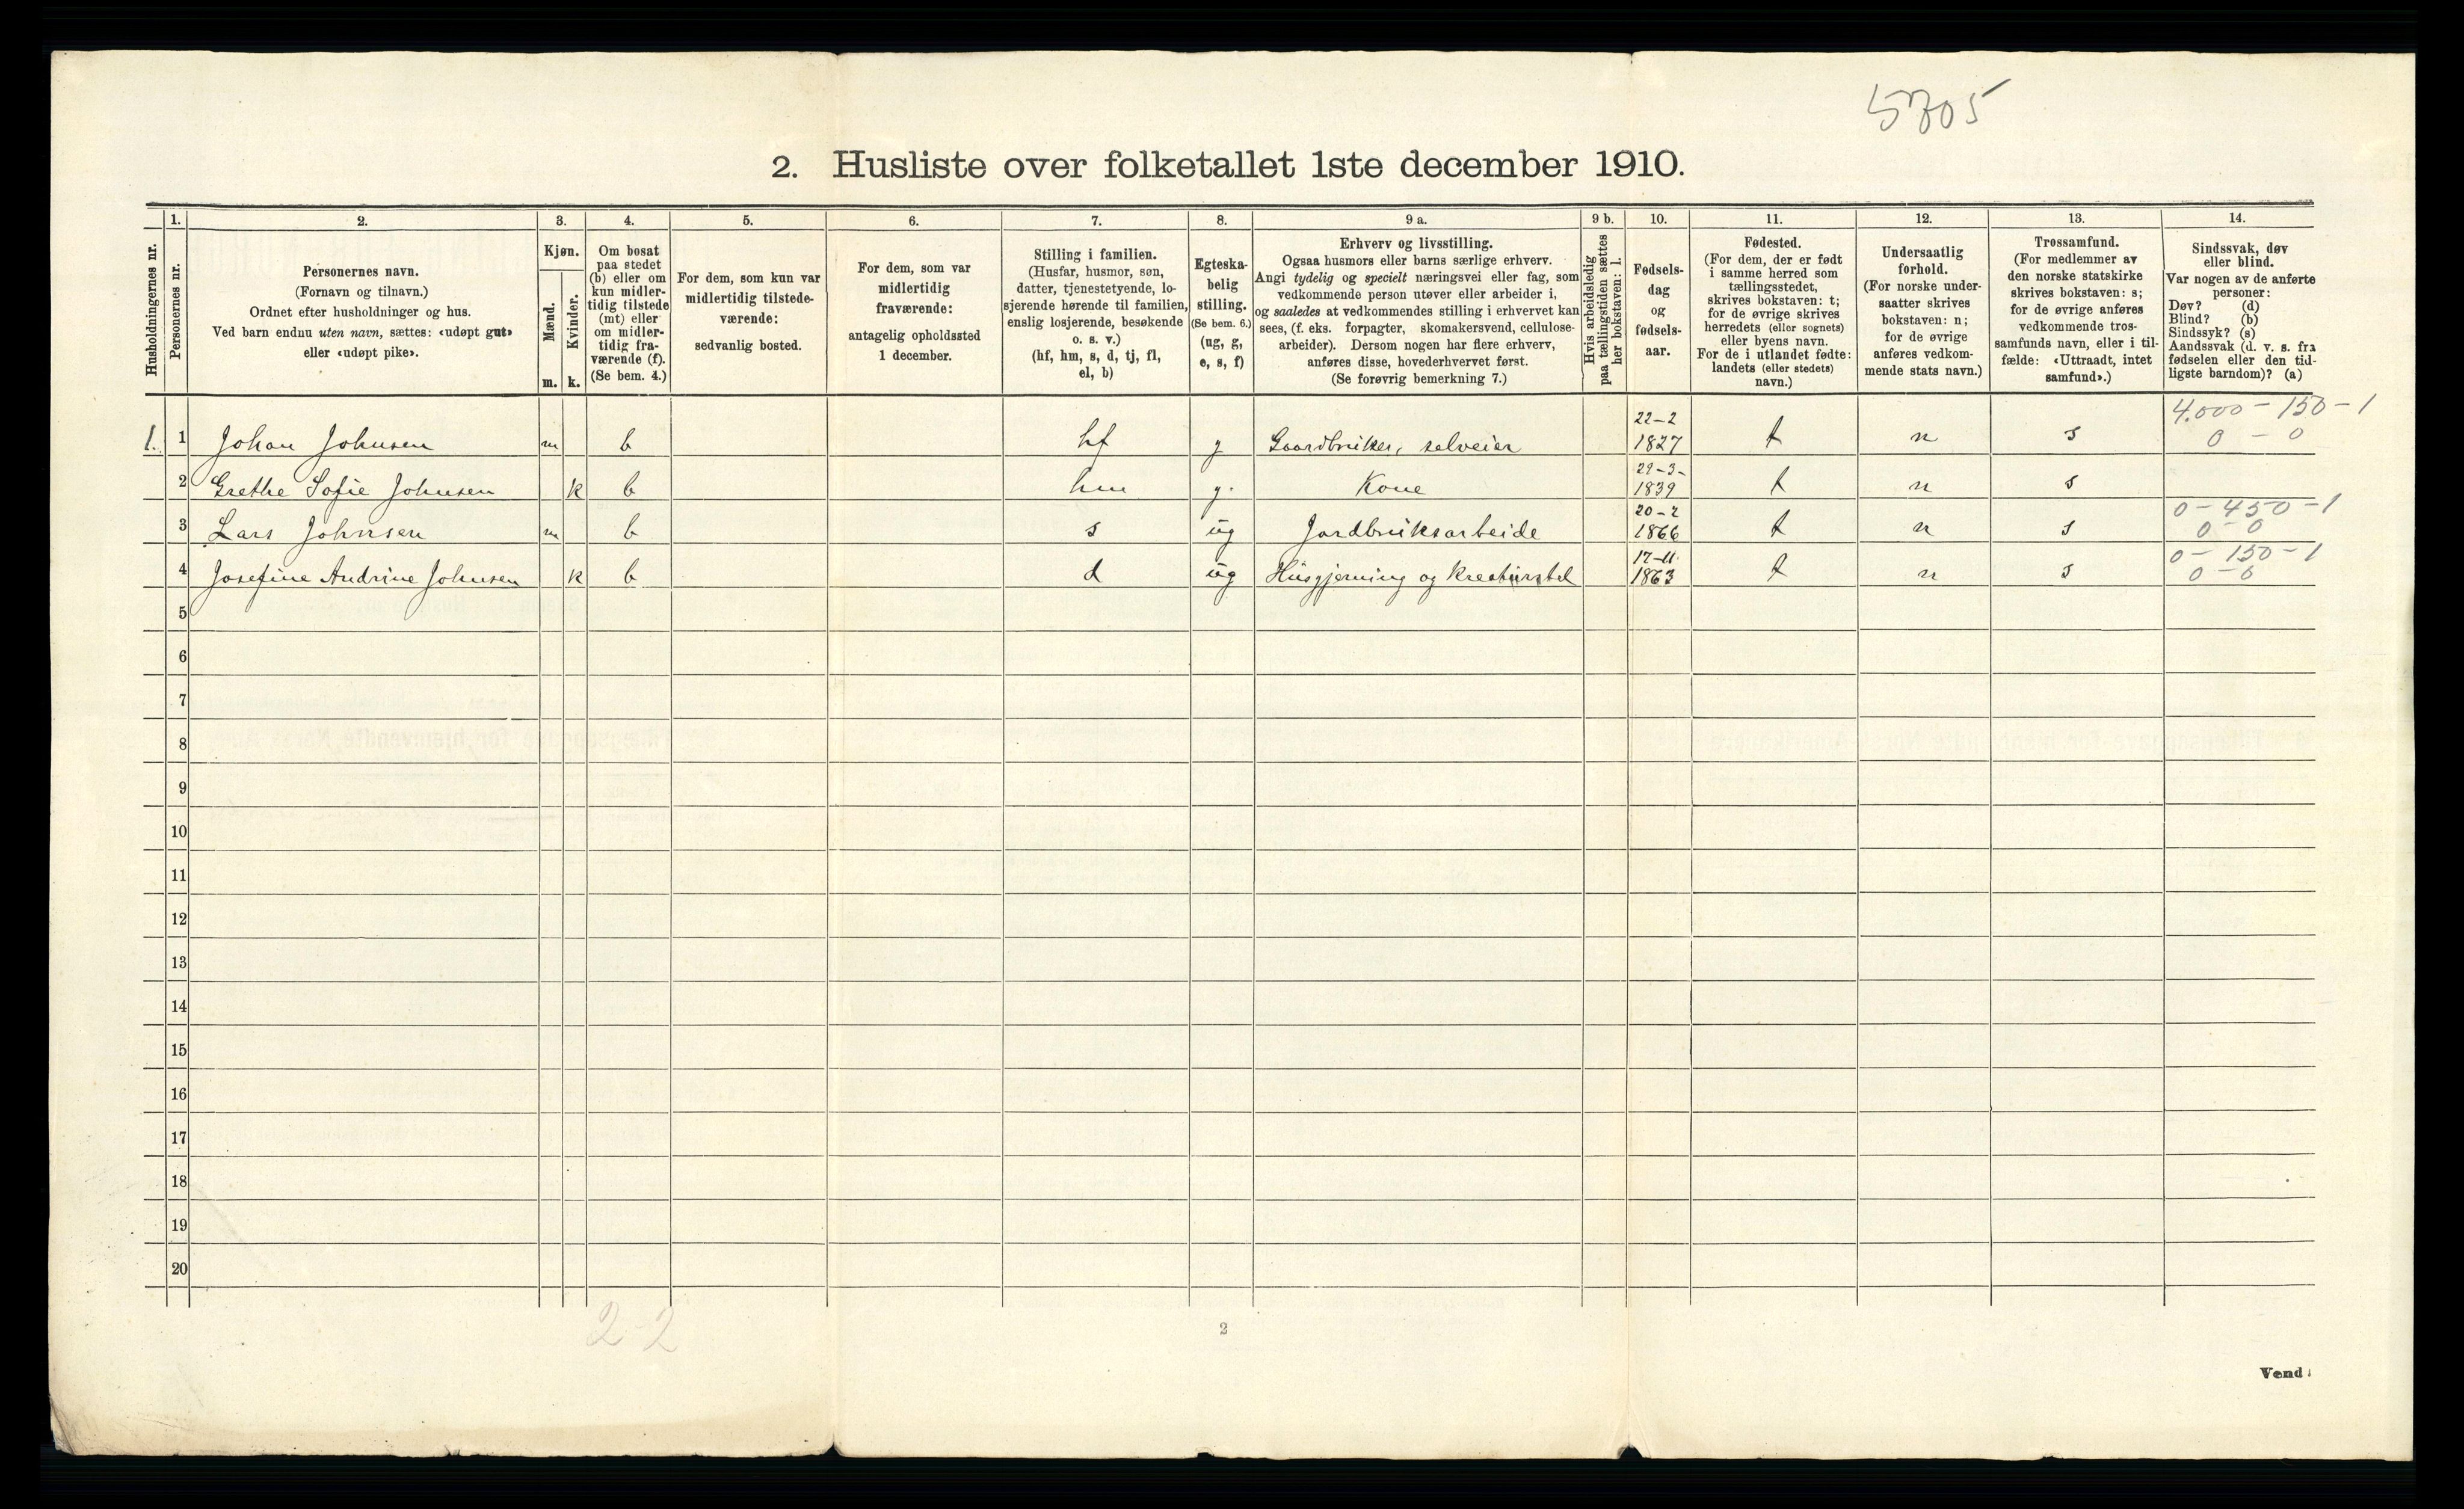 5705
2. Husliste over folketallet 1ste december 1910.
Husholdningernes nr.
1.
Personernes nr.
2.
Personernes navn.
(Fornavn og tilnavn.)
Ordnet efter husholdninger og hus.
Ved barn endnu uten navn, sættes: «udøpt gut»
eller «udøpt pike».
3.
Kjøn.
Mænd.
Kvinder.
m. k.
4.
Om bosat
paa stedet
(b) eller om
kun midler-
tidig tilstede
(mt) eller
om midler-
tidig fra-
værende (f).
(Se bem. 4.)
5.
For dem, som kun var
midlertidig tilstede-
værende:
sedvanlig bosted.
6.
For dem, som var
midlertidig
fraværende:
antagelig opholdssted
1 december.
7.
Stilling i familien.
(Husfar, husmor, søn,
datter, tjenestetyende, lo-
sjerende hørende til familien,
enslig losjerende, besøkende
o. s. v.)
(hf, hm, s, d, tj, fl,
el, b)
8.
Egteska-
belig
stilling.
(Se bem. 6.)
(ug, g,
e, s, f)
9 a.
Erhverv og livsstilling.
Ogsaa husmors eller barns særlige erhverv.
Angi tydelig og specielt næringsvei eller fag, som
vedkommende person utøver eller arbeider i,
og saaledes at vedkommendes stilling i erhvervet kan
sees, (f. eks. forpagter, skomakersvend, cellulose-
arbeider). Dersom nogen har flere erhverv,
anføres disse, hovederhvervet først.
(Se forøvrig bemerkning 7.)
9 b.
Hvis arbeidsledig
paa tællingstiden sættes
her bokstaven: l.
10.
Fødsels-
dag
og
fødsels-
aar.
11.
Fødested.
(For dem, der er født
i samme herred som
tællingsstedet,
skrives bokstaven: t;
for de øvrige skrives
herredets (eller sognets)
eller byens navn.
For de i utlandet fødte:
landets (eller stedets)
navn.)
12.
Undersaatlig
forhold.
(For norske under-
saatter skrives
bokstaven: n;
for de øvrige
anføres vedkom-
mende stats navn.)
13.
Trossamfund.
(For medlemmer av
den norske statskirke
skrives bokstaven: s;
for de øvrige anføres
vedkommende tros-
samfunds navn, eller i til-
fælde: «Uttraadt, intet
samfund».)
14.
Sindssvak, døv
eller blind.
Var nogen av de anførte
personer:
Døv? (d)
Blind? (b)
Sindssyk? (s)
Aandssvak (d. v. s. fra
fødselen eller den tid-
ligste barndom)? (a)
1. 1 Johan Johnsen m b hf g Gaardbruker, selveier 22-2 1827 t n s 4.000 - 150 - 1 0 - 0
2 Grethe Sofie Johnsen k b hm g. Kone 29-3- 1839 t n s
3 Lars Johnsen m b s ug Jordbruksarbeide 20-2 1866 t n s 0 - 450 - 1 0 - 0
4 Josefine Andrine Johnsen k b d ug Husgjerning og kreaturstel 17-11 1863 t n s 0 - 150 - 1 0 - 0
5
6
7
8
9
10
11
12
13
14
15
16
17
18
19
20
2 2
2
Vend